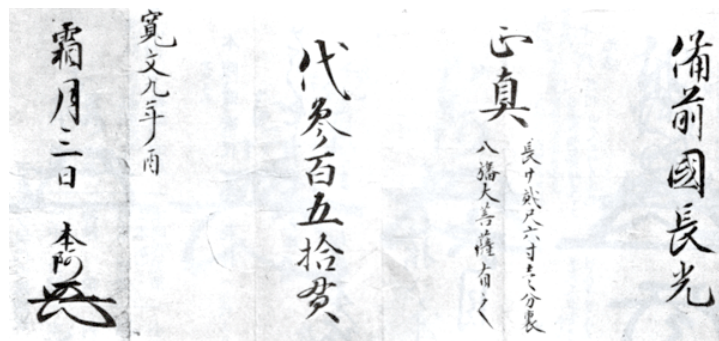 備前國長光
正真
長サ貳尺六寸分裏
八幡大菩薩有之
代参百五拾貫
寛文九年酉
霜月三日 本阿